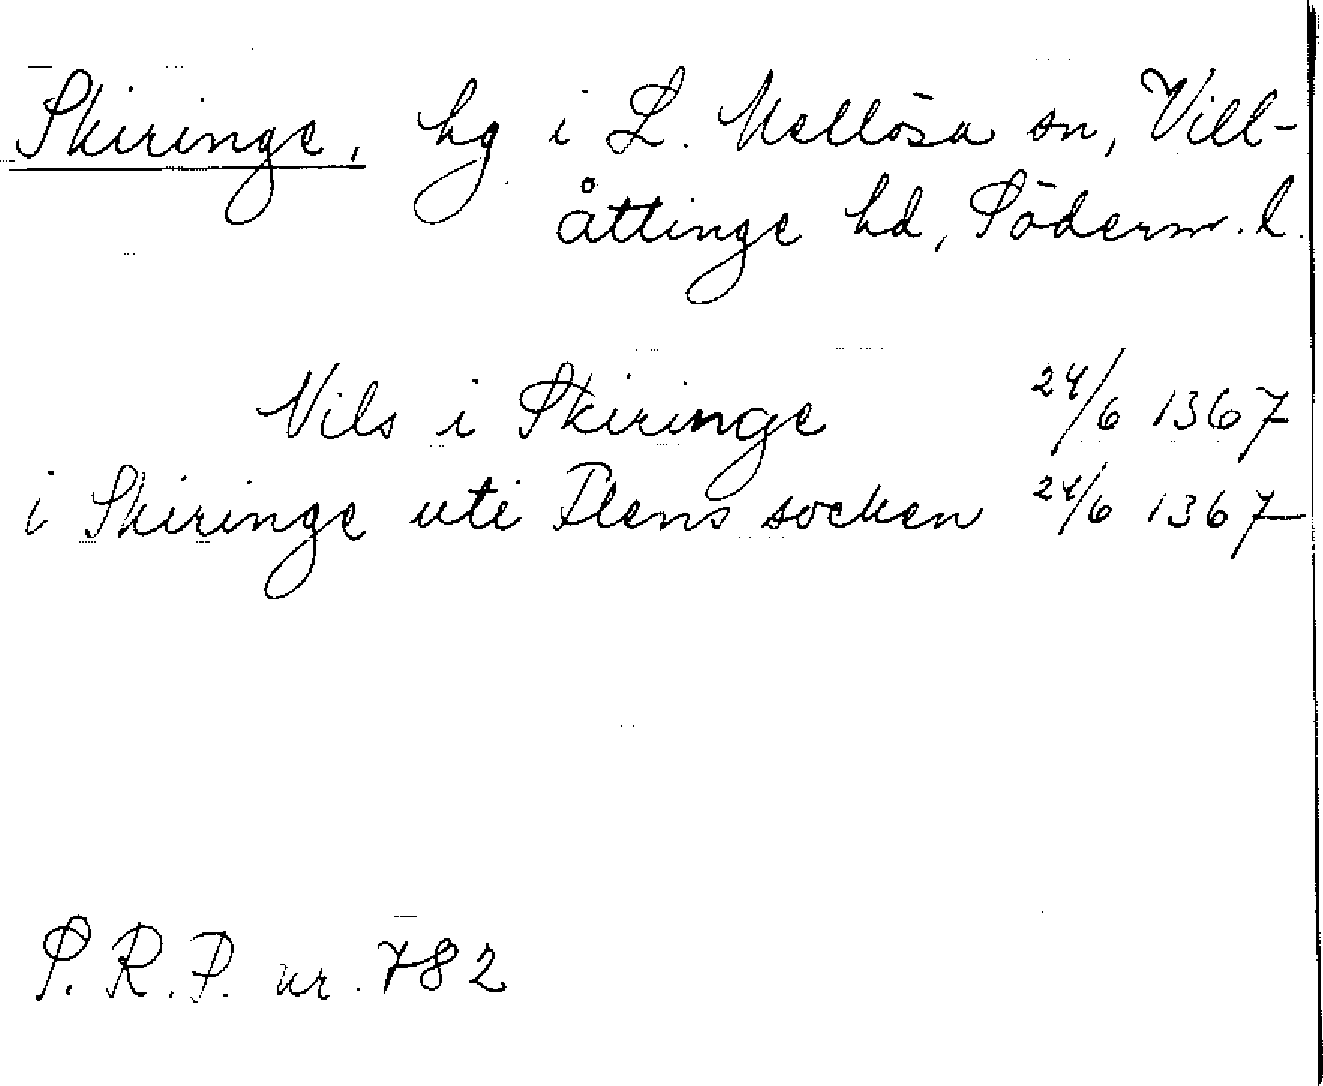 Skiringe, hg i L. Mellösa sn, Vill-
åttinge hd, Söderm. l.
Nils i Skiringe 24/6 1367
i Skiringe uti Flens socken 24/6 1367
S. R. P. nr. 782